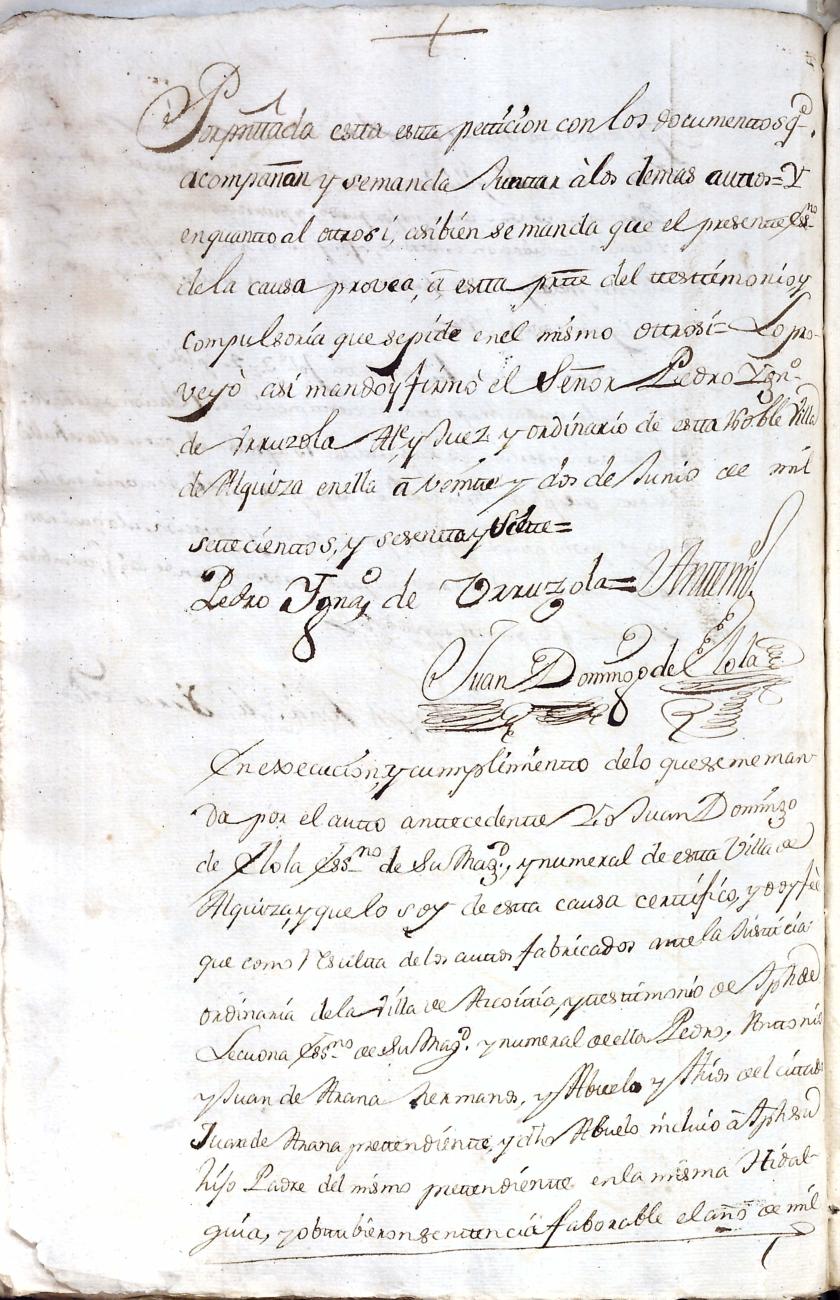 Por presentada esta esta petticion con los documenttos q.e
acompañan y se manda Junttar à los demas auttos= Y
en quantto al ottrosi, asibien se manda que el presentte Ess.no
de la causa provea, â estta partte del testtimonio y
compulsoria que se pide en el mismo ottrosi= Lo pro-
veyò asi mandò y firmò el Señor Pedro Ygn.o
de Urruzola Al.e y Juez y ordinario de estta Noble Villa
de Alquiza en ella â veintte y dos de Junio de mil
settecienttos, y sesentta y Siette=
Pedro Ygna.o de Urruzola= Antemi
Juan Domingo de Elola
En execucion, y cumplimientto de lo que se me man-
da por el autto anttecedentte Yo Juan Domingo
de Elola Ess.no de Su Mag.d, y numeral de estta Villa de
Alquiza, y que lo soy de estta causa certtifico, y doy fèe
que como Resultta de los auttos fabricados antte la Justticia
ordinaria de la Villa de Azcoittia, y testtimonio de Jph de
Lecuona Ess.no de Su Mag.d y numeral de ella Pedro, Anttonio
y Juan de Arana hermanos, y Abuelo y Thios del cittado
Juan de Arana prettendientte, y dho Abuelo incluió â Jph su
hijo Padre del mismo prettendientte en la misma Hidal-
guia, y obttubieron senttencia faborable el año de mil